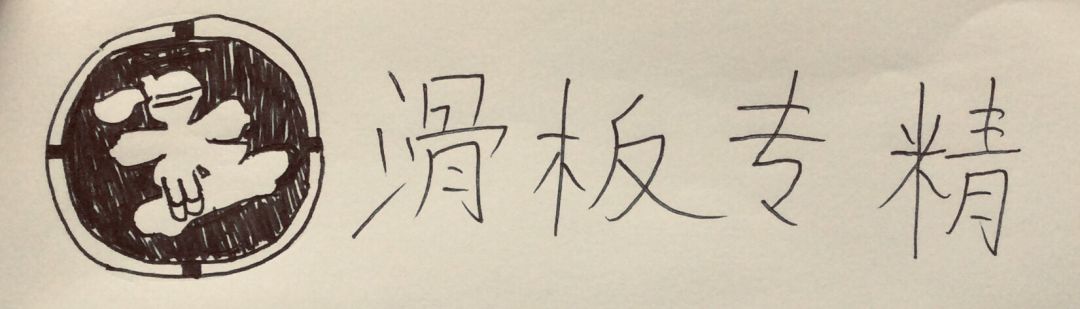 滑板专精